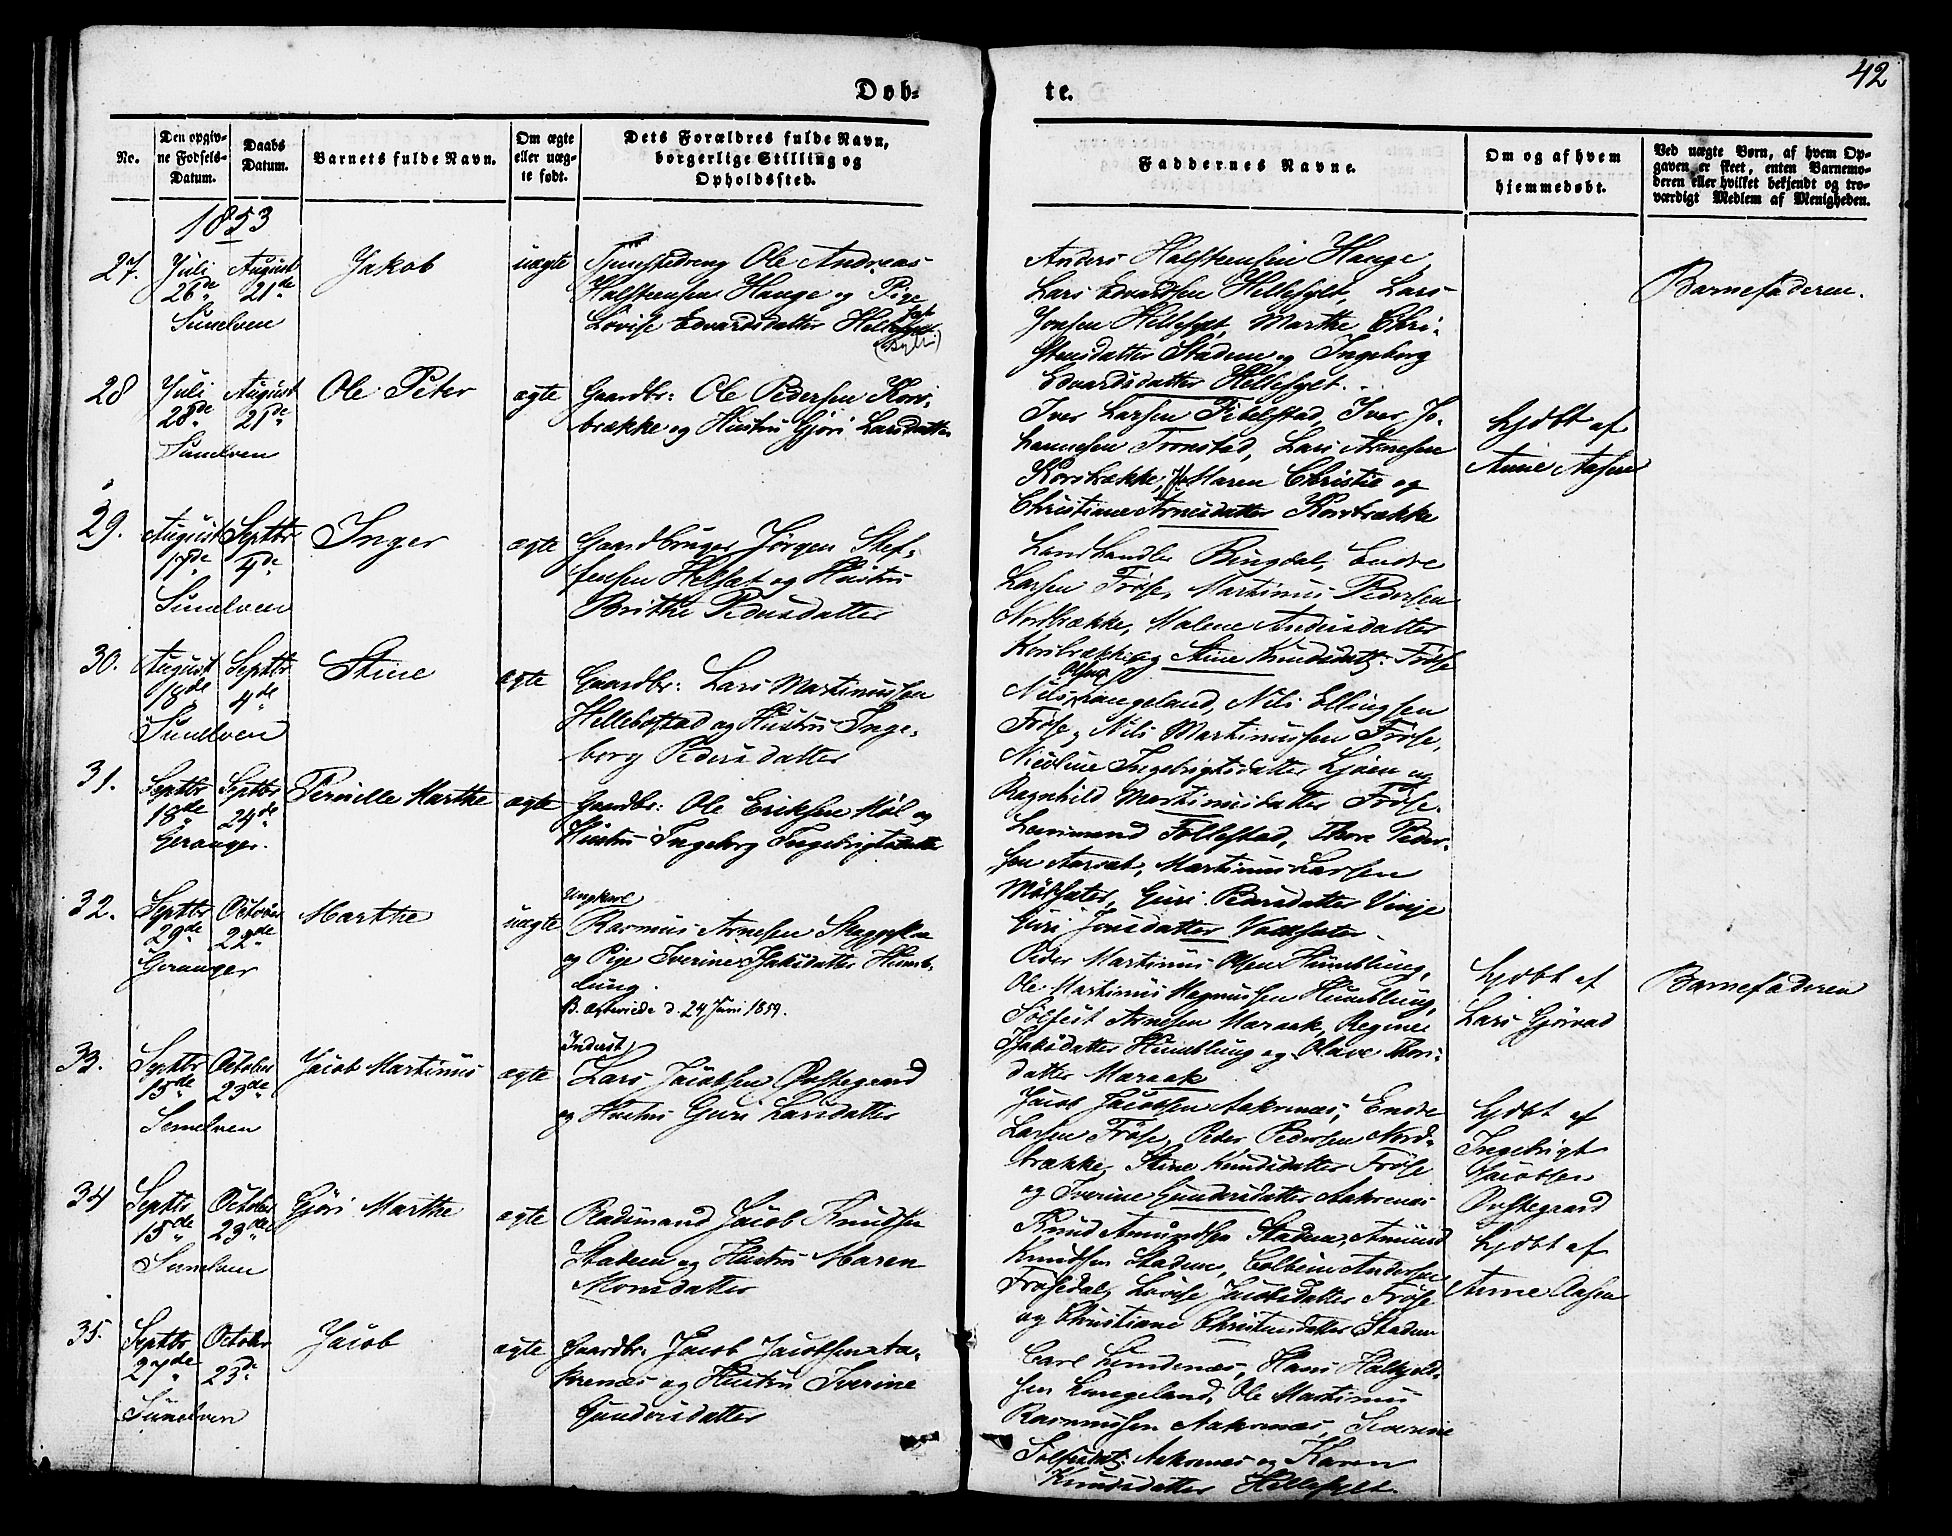 42
Døb-
te.
No.
Den opgiv-
ne Fødsels-
Datum.
Daabs
Datum.
Barnets fulde Navn.
Om ægte
eller uæg-
te født.
Dets Forældres fulde Navn,
borgerlige Stilling og
Opholdssted.
Faddernes Navne.
Om og af hvem
hjemmedøbt.
Ved uægte Børn, af hvem Op-
gaven er skeet, enten Barnemo-
deren eller hvilket bekjendt og tro-
værdigt Medlem af Menigheden.
1853
27.
Juli
26de
Sunelven
August
21de
Jakob
uægte
Tjenestedreng Ole Andreas
Halsteensen Hauge og Pige
Lovise Edvardsdatter
Anders Halsteensen Hauge,
Lars Edvardsen Hellesylt, Lars
Jonsen Hellesylt, Marthe Chri-
stensdatter Stadem og Ingeborg
Edvardsdatter Hellesylt.
Barnefaderen.
28
Juli
28de
Sunelven
August
21de
Ole Peter
ægte
Gaardbr: Ole Pedersen Kors-
brække og Hustru Gjøri Larsdatter
Iver Larsen Fibelstad, Iver Jo-
hannesen Tronstad, Lars Arnesen
Korsbrække, Maren Christie og
Christiane Arnesdatter Korsbrække
hjdbt af
Anne Aasen
29.
August
17de
Sunelven
Septbr
4de
Inger
ægte
Gaardbruger Jørgen Stef-
fensen Helsæt og Hustru
Brithe Pedersdatter
Landhandler Ringdal, Endre
Larsen Frøse, Martinus Pedersen
Nordbrække, Malene Andersdatter
Korsbrække og Stine Knudsdatt: Frøse
30.
August
18de
Sunelven
Septbr
4de
Stine
ægte
Gaardbr: Lars Martinussen
Hellebostad og Hustru Inge-
borg Pedersdatter
Olsen
Nils Langeland, Nils Ellingsen
Frøse, Nils Martinussen Frøse,
Nicoline Ingebrigtsdatter Ljøen og
Ragnhild Martinusdatter Frøse.
31.
Septbr
18de
Geranger.
Septbr
24de
Pernille Marthe
ægte
Gaardbr: Ole Eriksen Møl og
Hustru Ingeborg Ingebrigtsdatter
Follestad, Thore Peder-
sen Martinus Larsen
Guri Pedersdatter Vinje
Guri Jonsdatter
32.
Septbr
29de
Geranger
October
22de
Marthe
uægte
Ungkarl
Rasmus Arnesen
og Pige Iverine Jakobsdatter Humb-
lung.
B. ægteviede d. 24 Juni 1859.
Peder Martinus Olsen Humblung,
Ole Martinus Magnussen Humblung,
Sølfest Arnesen Maraak, Regine
Jakobsdatter Humblung og Olave Thor-
datter Maraak
hjdbt af
Lars Gjørvad
Barnefaderen
33.
Septbr
15de
Sunelven
October
23de
Jacob Martinus
ægte
Inderst
Lars Jacobsen Ovstegaard
og Hustru Guri Larsdatter
Jacob Jacobsen Aakrenæs, Endre
Larsen Frøse, Peder Pedersen Nord-
brække, Stine Knudsdatter Frøse
og Iverine Gundersdatter Aakrenæs
hjdbt af
Ingebrigt
Jacobsen
Ovstegaard
34
Septbr
15de
Sunelven
October
23de
Gjøri Marthe
ægte
Raadsmand Jacob Knudsen
Stadem og Hustru Maren
Monsdatter
Knud Amundsen Stadem, Amund
Knudsen Stadem, Colbein Andersen
Frøsedal, Lovise Jacobsdatter Frøse
og Christiane Christensdatter Stadem
hjdbt af
Anne Aasen
35.
Septbr
27de
Sunelven
October
23de
Jacob
ægte
Gaardbr: Jacob Jacobsen Aa-
krenæs og Hustru Iverine
Gundersdatter
Carl Lindenæs, Hans
sen Langeland, Ole Martinus
Rasmussen Aakrenæs, Severine
Aakrenæs og Karen
Knudsdatter Hellesylt.